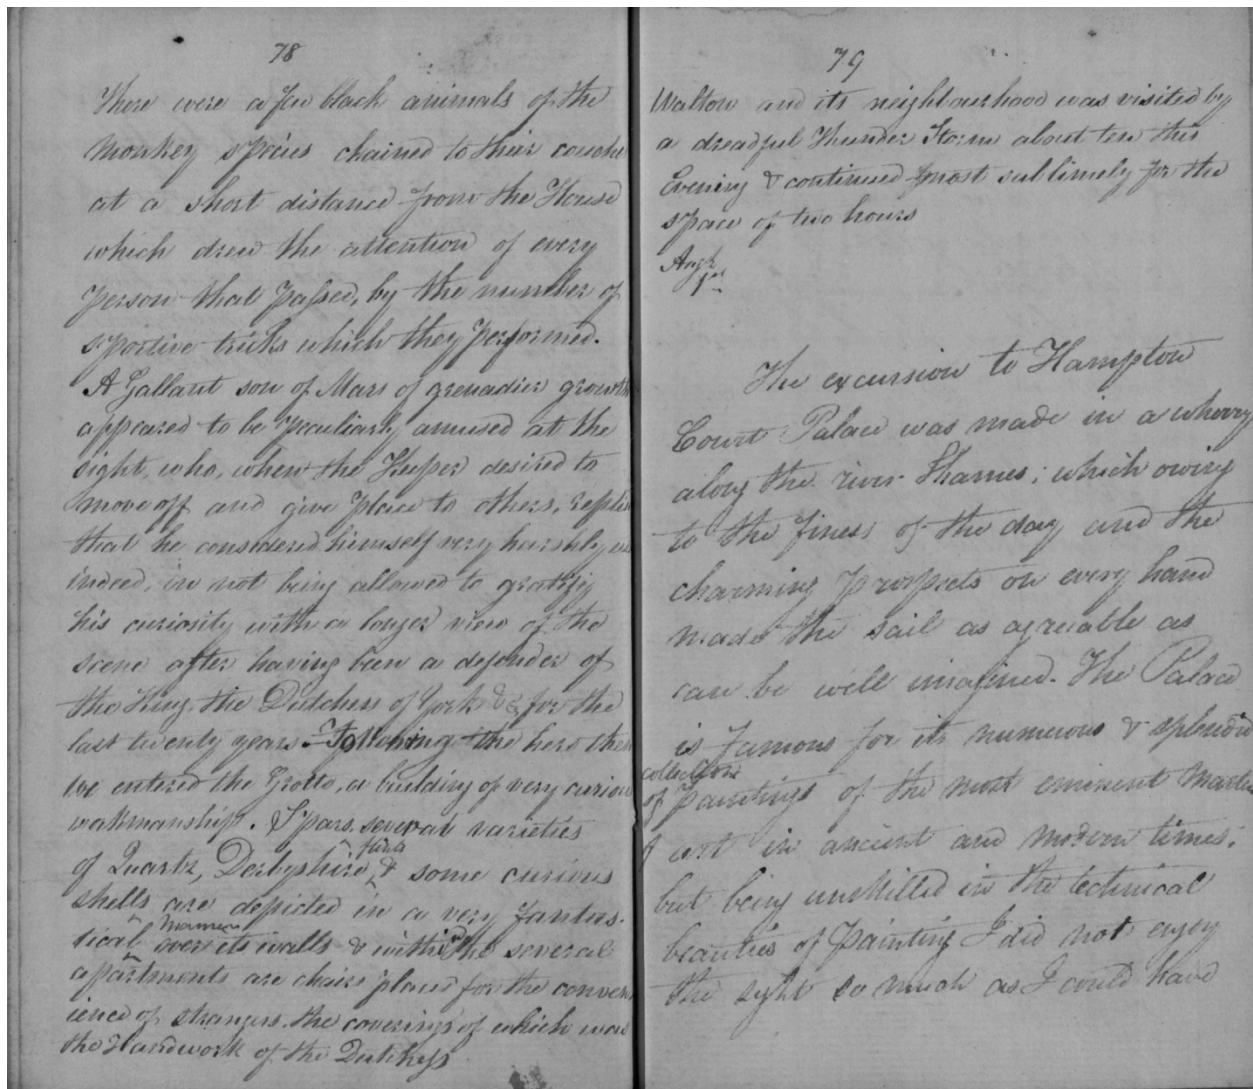 78
There were a few black animals of the
monkey species chained to their couches
at a short distance from the House
which drew the attention of every
person that passed, by the number of
sportive tricks which they performed.
A Gallant son of Mars of grenadier growth
appeared to be peculiarly amused at the
sight, who, when the Keeper desired to
move off and give place to others, replied
that he considered himself very harshly
indeed, in not being allowed to gratify
his curiosity with a longer view of the
scene after having been a defender of
the King, the Dutchess of York &c for the
last twenty years. Following the hero then
we entered the Grotto, a building of very curious
workmanship. Spars, several varieties
of Quartz, Derbyshire, & some curious
shells are depicted in a very fantas-
tical manner over its walls & within the several
apartments are chairs placed for the conven
ience of strangers, the coverings of which was
the Handwork of the Dutchess
79
Walton and its neighbourhood was visited by
a dreadful Thunder Storm about ten this
Evening & continued most sublimely for the
space of two hours
Augt
1st
The excursion to Hampton
Court Palace was made in a wherry
along the river Thames; which owing
to the finess of the day and the
charming prospects on every hand
made the sail as agreeable as
can be well imagined. The Palace
is famous for its numerous & splendid
collections
of paintings of the most eminent Masters
of art in ancient and modern times;
but being unskilled in the technical
beauties of painting I did not enjoy
the sight so much as I could have